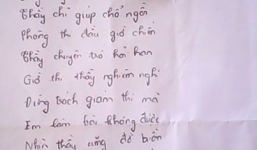 Thầy chỉ giúp chỗ ngồi
Phòng thi đầu giờ chiến
Thầy chuyện trò hỏi han
Giờ thi thầy nghiêm nghị
Đừng trách giám thị mà
Em làm bài không được
Nhìn thầy cũng đỡ buồn